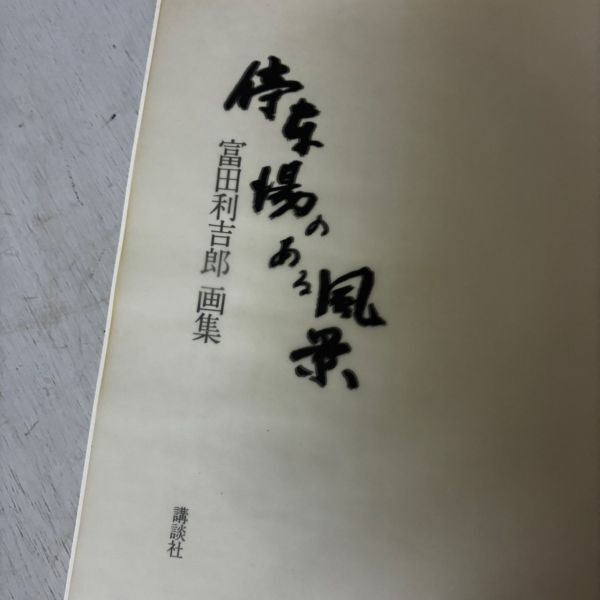 停車場のある風景
富田利吉郎 画集
講談社